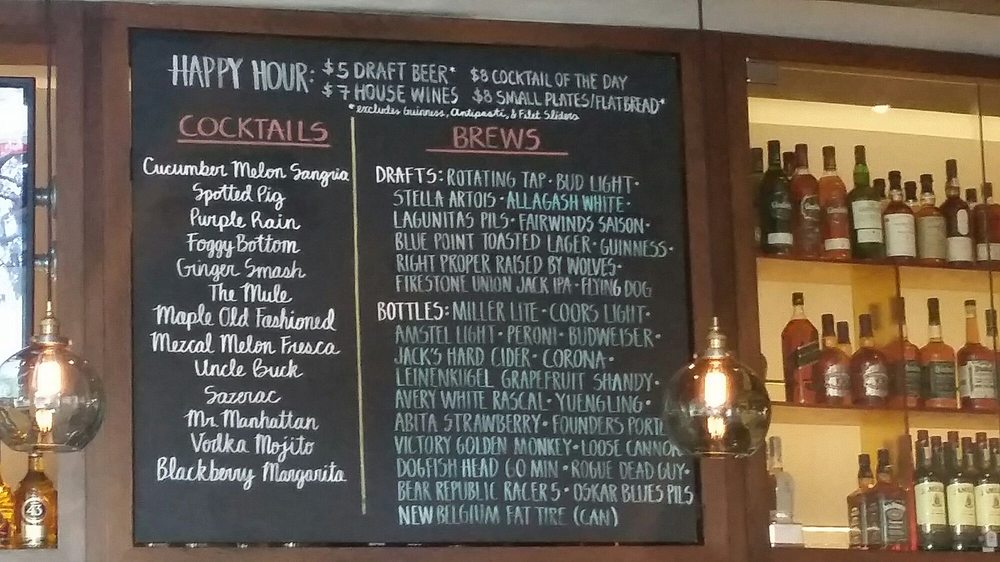 HAPPY HOUR: $5 DRAFT BEER* $8 COCKTAIL OF THE DAY
$7 HOUSE WINES $8 SMALL PLATES/FLATBREAD*
*excludes Guinness, Antipasti, & Filet Sliders
COCKTAILS
Cucumber Melon Sangria
Spotted Pig
Purple Rain
Foggy Bottom
Ginger Smash
The Mule
Maple Old Fashioned
Mezcal Melon Fresca
Uncle Buck
Sazerac
Mr. Manhattan
Vodka Mojito
Blackberry Margarita
BREWS
DRAFTS: ROTATING TAP • BUD LIGHT •
STELLA ARTOIS • ALLAGASH WHITE •
LAGUNITAS PILS • FAIRWINDS SAISON •
BLUE POINT TOASTED LAGER • GUINNESS •
RIGHT PROPER RAISED BY WOLVES •
FIRESTONE UNION JACK IPA • FLYING DOG
BOTTLES: MILLER LITE • COORS LIGHT •
AMSTEL LIGHT • PERONI • BUDWEISER •
JACK'S HARD CIDER • CORONA •
LEINENKUGEL GRAPEFRUIT SHANDY •
AVERY WHITE RASCAL • YUENGLING •
ABITA STRAWBERRY • FOUNDERS PORTE
VICTORY GOLDEN MONKEY • LOOSE CANNON
DOGFISH HEAD 60 MIN • ROGUE DEAD GUY •
BEAR REPUBLIC RACER 5 • OSKAR BLUES PILS
NEW BELGIUM FAT TIRE (CAN)
43